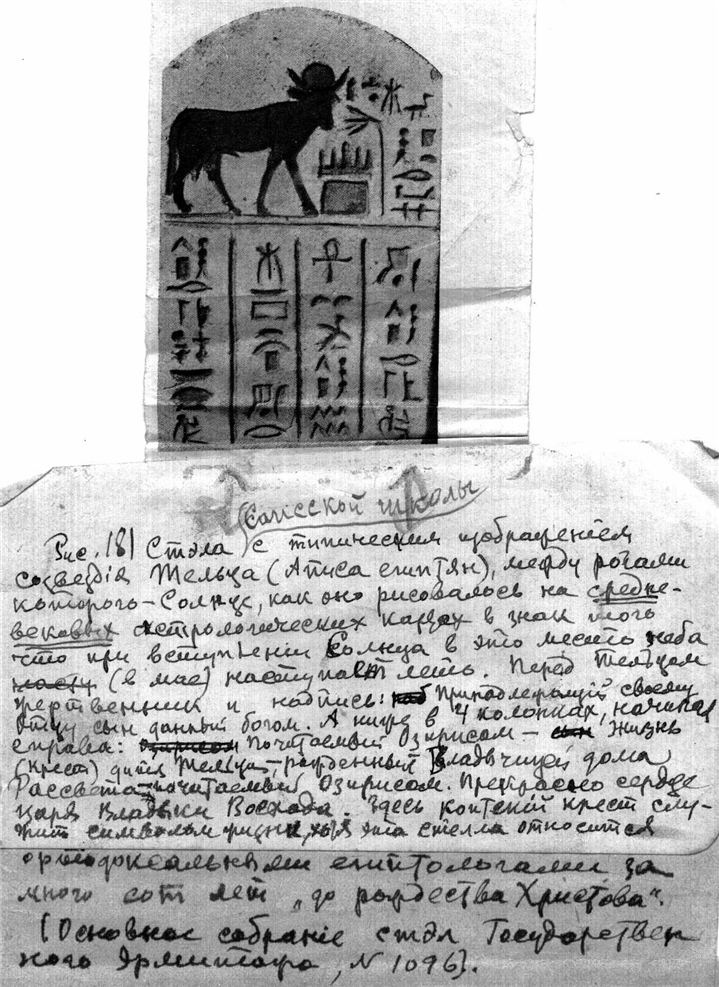 Саисской школы
Рис. 181 Стэла с типическим изображеніем
созвездія Тельца (Аписа египтян), между рогами
которого – Солнце, как оно рисовалось на средне-
вековых астрологических картах в знак того
что при вступленіи Солнца в это место неба
(в мае) наступает лето. Перед Тельцом
жертвенник и надпись: Принадлежащій своему
отцу сын данный богом. А внизу в 4 колонках, начиная
справа: Почитаемый Озирисом – жизнь
(крест) дитя Тельца, рожденный Владычицей дома
Рассвета почитаемый Озирисом. Прекрасно сердце
царя Владыки Восхода. Здесь коптскій крест слу-
жит символом жизни, хотя эта стелла относится
ортодоксальными египтологами за
много сот лет „до рождества Христова“.
(Основное собраніе стэл Государствен
ного Эрмитажа, N 1096).